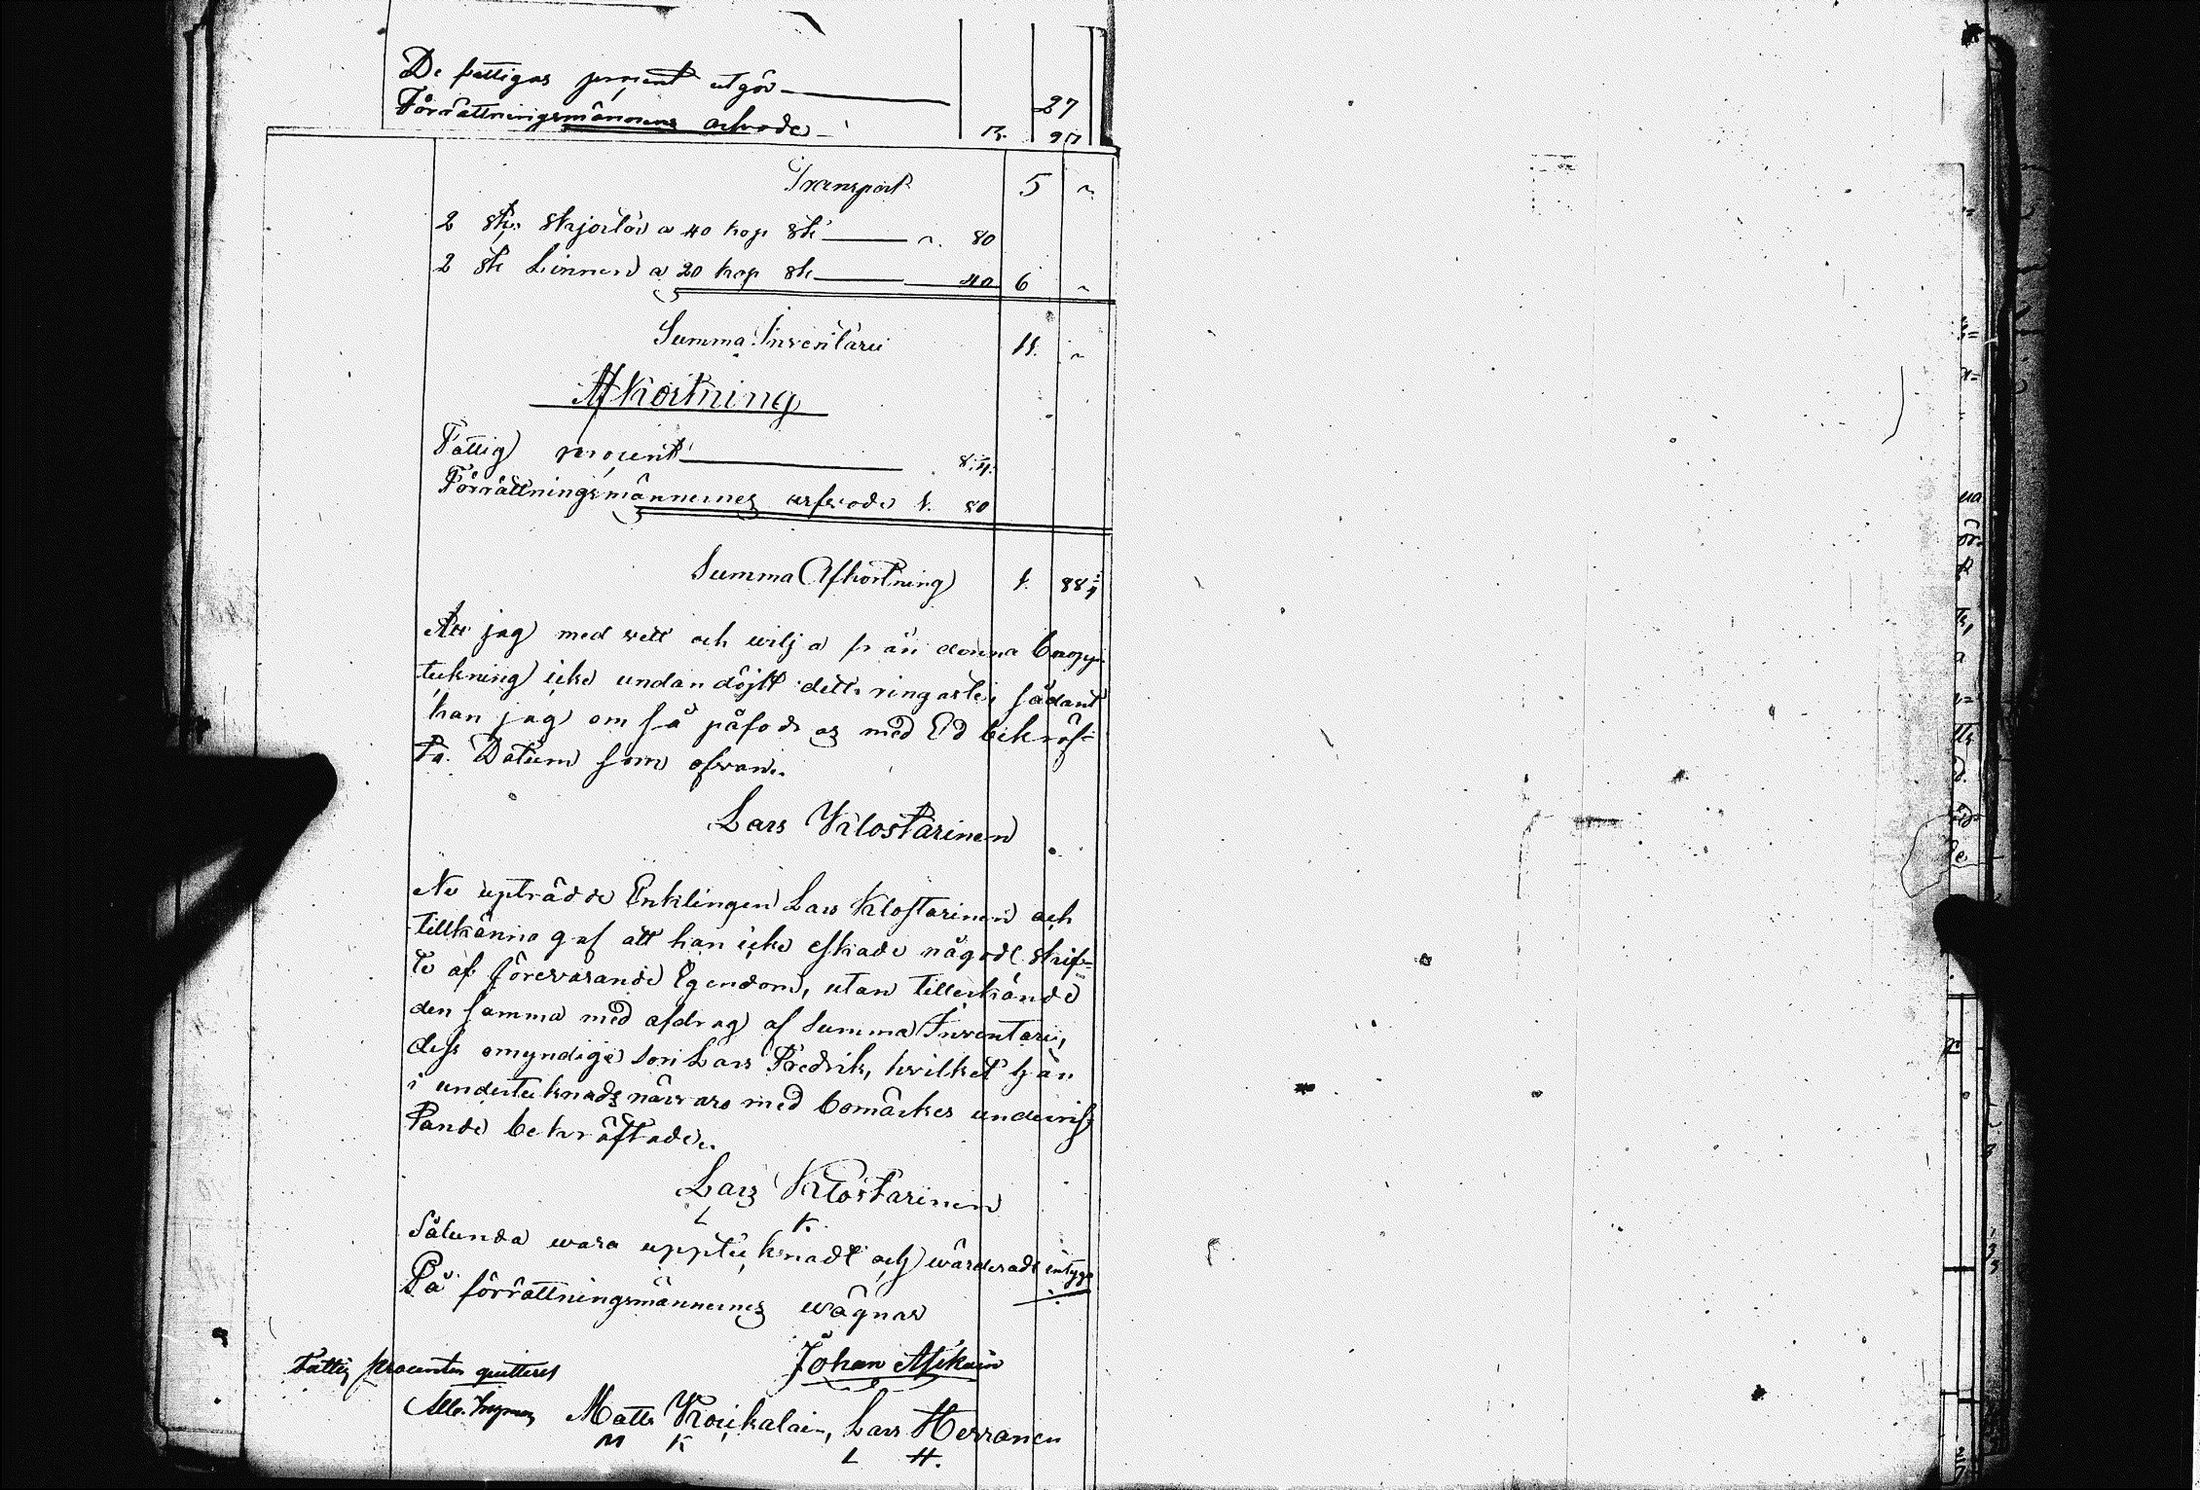 De fattigas procent utgör 27
Förrättningsmännens arfvode R. 27
Transport 5 "
2 st. Skjortor a 40 kop st ". 80
2 st Linnen a 20 kop st 40 6 "
Summa Inventarii 11. "
Afkortning
Fattig procent 8 1/4
Förrättningsmännernes arfvode 1. 80
Summa Afkortning 1. 88 1/4
Att jag med vett och wilja från denna bouppteckning
icke undandöjlt dett ringaste, sådant
kan jag om så påfodras med Ed bekräf-
ta. Datum som ofvan.
Lars Klostarinen
Nu upträdde Enklingen Lars Klostarinen och
tillkänna gaf att han icke eskade någodt skif-
te af förevarande Egendom, utan tillerkände
den samma med afdrag af Summa Inventarii,
dess omyndige son Lars Fredrik, hvilket han
i undertecknads närvaro med bomärkes underrist
tande bekräftade.
Lars Klostarinen
L K.
Sålunda wara uppteicknadt och wärderadt intyga
På förrättningsmännernes wägnar
Johan
Fattig procenten quitteras
Matts Koukalain, Lars Herranen
M K L H.